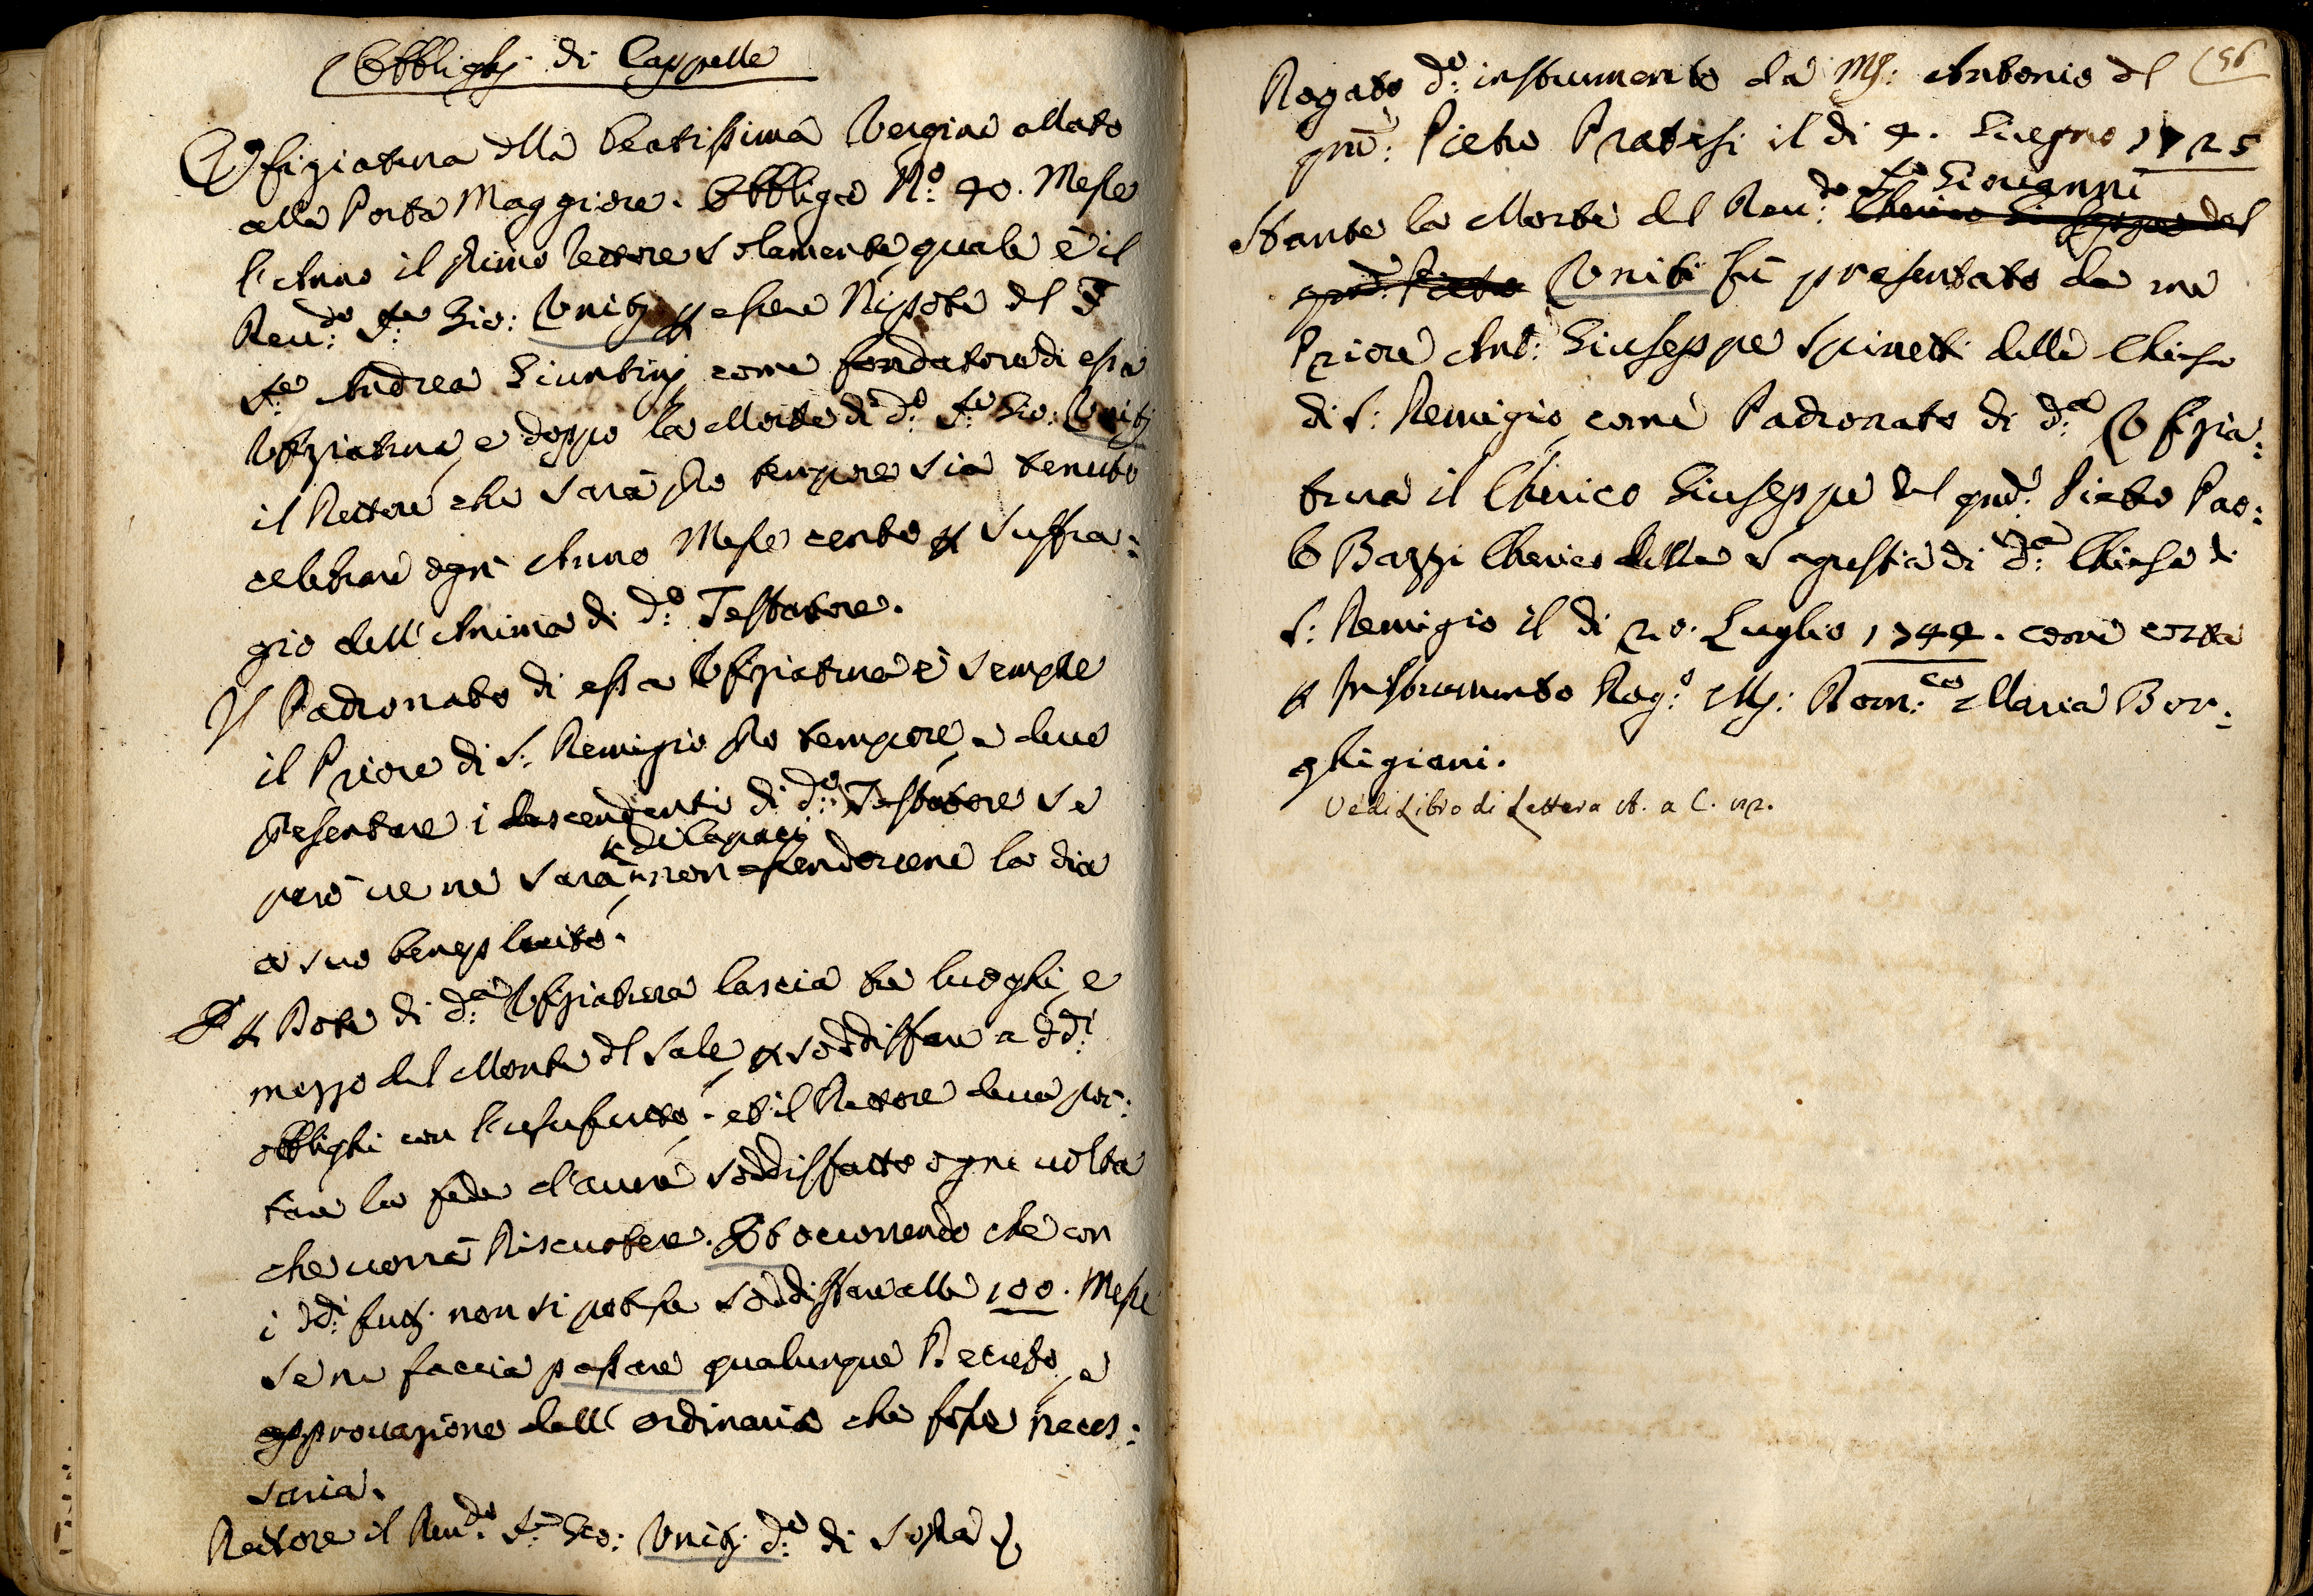 Obblighj di Cappelle
Vffiziatura della Beatissima Vergine allato
alla Porta Maggiore. Obbligo N.º 40. Messe
l'Anno il primo Rettore solamente quale è il
Reu:do Sr.e Gio: Vnitj p essere Nipote del
Sr.e Andrea Giuntinj come fondatore di essa
Vfiziatura, e doppo la Morte di d:o Sr.e Gio: Vnitj
il Rettore che sarà pro tempore sia tenuto
celebrare ogni Anno Messe cento p suffra:
gio dell'Anima di d:o Testatore.
Il Padronato di essa Vfiziatura è sempre
il Priore di S: Remigio pro tempore, e deue
presentare i descendenti di d:o Testatore se
però ue ne sarà
de capaci
non essendocene la dia
a suo beneplacito.
E p Dote di d:a Vfiziatura lascia tre luoghi, e
mezzo del Monte del Sale, p soddisfare a dd:i
obblighi con l'usufrutto, et il Rettore deue por:
tare la fede d'auere soddisfatto ogni uolta
che uorrà Riscuotere. Et occorrendo che con
i dd:i frutj non si potesse soddisfare alle 100. Messe
se ne faccia passare qualunque Decreto, e
approuazione dell'ordinario che fosse neces:
saria.
Rettore il Reu:do Sr.e Gio: Vnitj d:o di sopra
56
Rogato d:o instrumento da Mr: Antonio del
qm: Pietro Pratesi il di 4. Giugno 1725
Stante la Morte del Reu:do
Sr.e Giouanni
Cherico Giuseppe del
qm: Pietro Vniti fù presentato da me
Priore Ant: Giuseppe Spinetti della Chiesa
di S: Remigio, come Padronato di d:a Vfizia:
tura il Cherico Giuseppe del qm: Pietro Pao:
lo Bazzi Cherico della Sagrestia di d:a Chiesa di
S: Remigio il di 20. Luglio 1744. come costa
p Instrumento Rog:o Mr: Dom:co Maria Bor:
ghigiani.
Vedi Libro di Lettera A. a C.